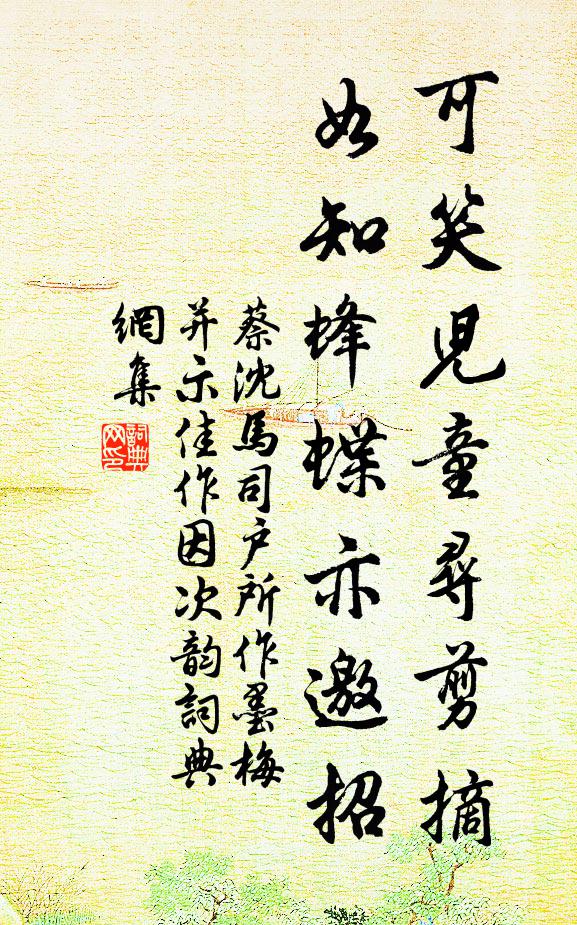 可笑児童尋剪摘
如知蜂蝶亦邀招
蔡沈馬司户所作墨梅
并示佳作因次韵詞典
網集
詞典
网印